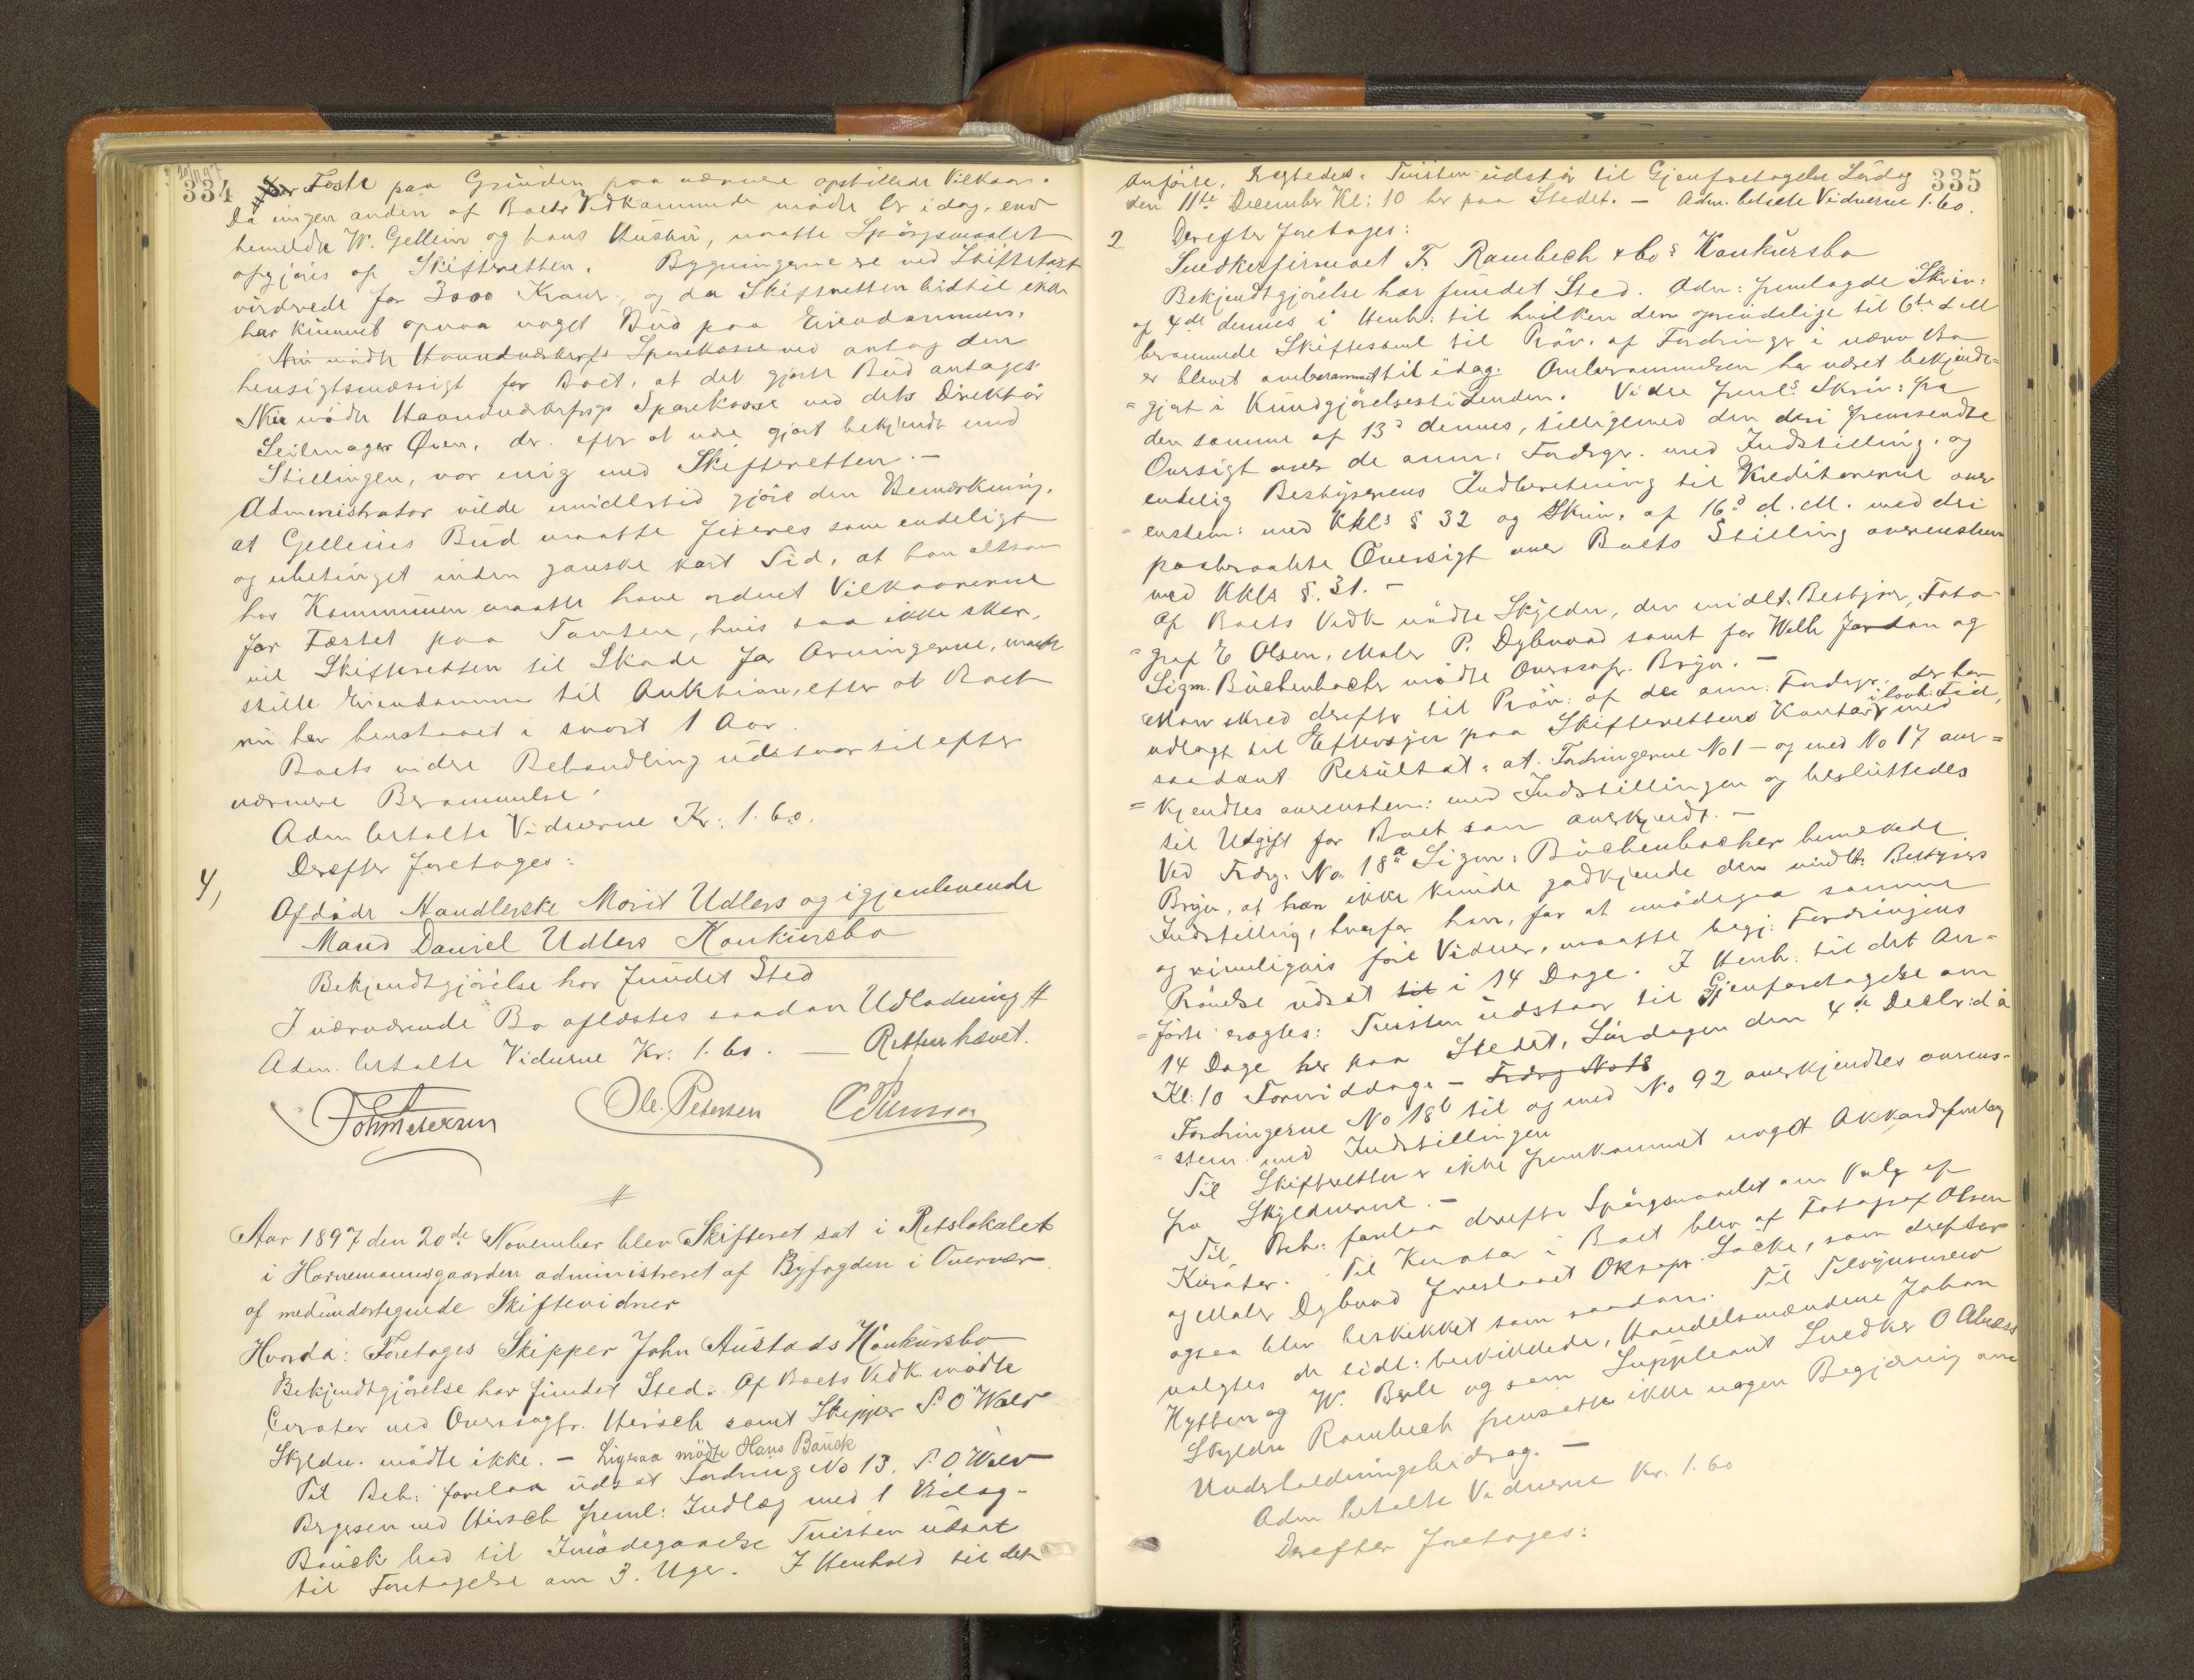 20/11 97
334 Feste paa Grunden paa nærmere opstillede Vilkaar.
Da ingen anden af Boets Vedkommende mødte her idag, end
bemeldte W. Gellein og hans Hustru, maatte Spørgsmaalet
afgjøres af Skifteretten. Bygningerne er ved Skiftetaxt
virdrede for 3000 Kroner, og da Skifteretten hidtil ikke
har kunnet opnaa noget Bud paa Eiendommen,
Nu mødte Haandværkerfs Sparekasse ved antog den
hensigtsmæssigt for Boet, at det gjorte Bud antages.
Nu mødte Haandværkerfngs Sparekasse ved dets Direktør
Seilmager Øien, der efter at være gjort bekjendt med
Stillingen, var enig med Skifteretten. –
Administrator vilde imidlertid gjøre den Bemærkning,
at Gelleins Bud maatte fixeres som endeligt
og ubetinget inden ganske kort Tid, at han altsaa
hos Kommunen maatte have ordnet Vilkaarerne
for Fæstet paa Tomten, hvis saa ikke sker,
vil Skifteretten til Skade for Arvingerne, maatte
stille Eiendommen til Auktion, efter at Boet
nu har henstaaet i snart 1 Aar.
Boets videre Behandling udstaar til efter
nærmere Berammelse.
Adm betalte Vidnerne Kr: 1.60.
Derefter foretoges:
4, Afdøde Handlerske Morit Udlers og igjenlevende
Mand Daniel Udlers Konkursbo
Bekjendtgjørelse har fundet Sted
I nærværende Bo oplæstes saadan Udlodning #
Adm. betalte Vidnerne Kr: 1.60. — Retten hævet.
Ole Petersen
#
Aar 1897 den 20de November blev Skifteret sat i Retslokalet
i Hornemannsgaarden administreret af Byfogden i Overvær
af medundertegnede Skiftevidner
Hvorda: Foretoges Skipper John Austads Konkursbo
Bekjendtgjørelse har fundet Sted. Af Boets Vedk. mødte
Curator ved Overssagfr. Hirsch samt Skipper P. O Wold
Skyldn. mødte ikke. – Ligesaa mødte Hans Bauck
Til Beh: forelaa udsat Fordring No 13. P. O Wold
Brgesen ved Hirsch freml: Indlæg med 1 Bilag –
Bauck bad til Imødegaaelse Tvisten udsat
til Foretagelse om 3. Uger. I Henhold til det
335
anførte, eragtedes: Tvisten udstår til Gjenforetagelse Lördag
den 11te December Kl: 10 her paa Stedet. – Adm. betalte Vidnerne 1.60.
2 Derefter foretoges:
Snedkerfirmaet F. Rambech & Co s Konkursbo
Bekjendtgjørelse har fundet Sted. Adm: fremlagde Skriv:
af 4de dennes i Henh: til hvilken den oprindelige til 6te d M
berammede Skiftesaml til Prøv. af Fordringer i nærv Bo
er blevet omberammet til idag. Omberammelsen har været bekjendt=
=gjort i Kundgjørelsestidenden. Videre freml s Skriv: fra
den samme af 13 d dennes, tilligemed den deri fremsendte
Oversigt over de anm: Fordrgr. med Indstilling, og
endelig Bestyrerens Indberetning til Kreditorerne over
=enstem: med Kkls § 32 og Skriv. af 16 d d. M. med deri
paaberaabte Oversigt over Boets Stilling overenstem
med Kkls §. 31. –
Af Boets Vedk mødte Skyldn, den midlt. Bestyrer, Foto-
=graf E Olsen, Maler P. Dybwad samt for Wilh Jordan og
Sigm. Büchenbacher mødte Overssagf. Bryn. –
Man skred derefter til Prøv: af de anm: Fordrgr. der har
udlagt til Eftersyn paa Skifterettens Kontor i lovb: Tid, med
saadant Resultat, at Fordringerne No 1 – og med No 17 aner=
=kjendtes overenstem: med Indstillingen og besluttedes
til Udgift for Boet som anerkjendt. –
Ved Fordrg. No 18 a Sigm: Büchenbacher bemærkede
Bryn, at han ikke kunde godkjende den midlt: Bestyrers
Indstilling, hvorfor han, for at imødegaa samme
og rimeligvis føre Vidner, maatte begj: Fordringens
Prøvelse udsat til i 14 Dage. I Henh: til det An=
=førte eragtes: Tvisten udstaar til Gjenforetagelse om
14 Dage her paa Stedet, Lørdagen den 4de Decbr: d å
Kl: 10 Formiddag. – Fordrg No 18
Fordringerne No 18 b til og med No 92 anerkjendtes overens-
=stem. med Indstillingen
Til Skifteretten er ikke fremkommet noget Akkordsforslag
fra Skyldnerne. –
Til Beh: forelaa derefter Spørgsmaalet om Valg af
Kurator. Til Kurator i Boet blev af Fotograf Olsen
og Maler Dybwad foreslaaet Oksagfr. Lacke, som derefter
ogsaa blev beskikket som saadan. Til Tilsynsmænd
valgtes de tidl: beskikkede, Handelsmændene Johan
Hytten og W. Berle og som Suppleant Snedker O Alnæss
Skyldn Rambech fremsatte ikke nogen Begjæring om
Underholdningsbidrag. –
Adm betalte Vidnerne Kr. 1.60
Derefter foretoges: